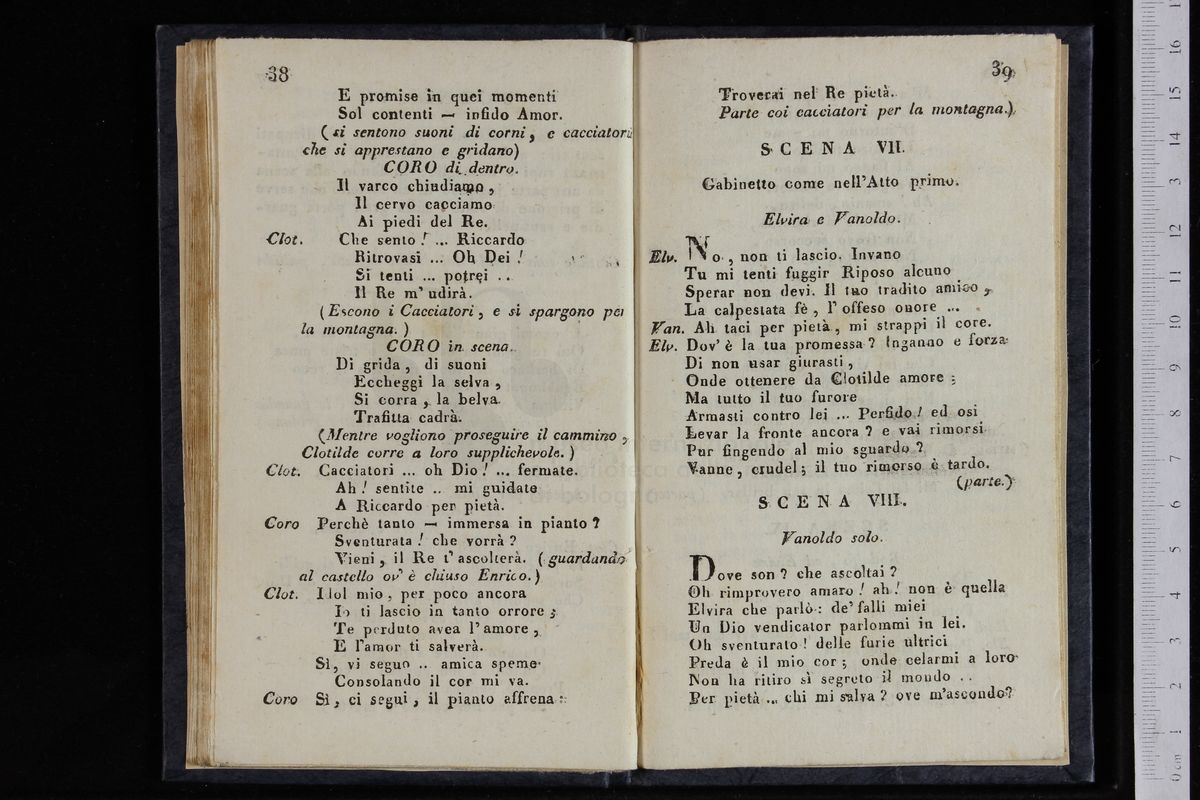 38
E promise in quei momenti
Sol contenti — infido Amor.
( si sentono suoni di corni, e cacciatori
che si apprestano e gridano)
CORO di dentro.
Il varco chiudiamo,
Il cervo cacciamo
Ai piedi del Re.
Clot. Che sento! ... Riccardo
Ritrovasi ... Oh Dei!
Si tenti ... potrei ..
Il Re m' udirà.
(Escono i Cacciatori, e si spargono per
la montagna. )
CORO in scena.
Di grida, di suoni
Eccheggi la selva,
Si corra, la belva
Trafitta cadrà.
(Mentre vogliono proseguire il cammino,
Clotilde corre a loro supplichevole. )
Clot. Cacciatori ... oh Dio! ... fermate.
Ah! sentite .. mi guidate
A Riccardo per pietà.
Coro Perchè tanto — immersa in pianto?
Sventurata! che vorrà?
Vieni, il Re t' ascolterà. (guardando
al castello ov' è chiuso Enrico.)
Clot. Idol mio, per poco ancora
Io ti lascio in tanto orrore;
Te perduto avea l' amore,
E l'amor ti salverà.
Sì, vi seguo .. amica speme
Consolando il cor mi va.
Coro Sì, ci segui, il pianto affrena:
39
Troverai nel Re pietà.
Parte coi cacciatori per la montagna.)
SCENA VII.
Gabinetto come nell'Atto primo.
Elvira e Vanoldo.
Elv. No, non ti lascio. Invano
Tu mi tenti fuggir Riposo alcuno
Sperar non devi. Il tuo tradito amico,
La calpestata fè, l' offeso onore ...
Van. Ah taci per pietà, mi strappi il core.
Elv. Dov' è la tua promessa? Inganno e forza
Di non usar giurasti,
Onde ottenere da Clotilde amore;
Ma tutto il tuo furore
Armasti contro lei ... Perfido! ed osi
Levar la fronte ancora? e vai rimorsi
Pur fingendo al mio sguardo?
Vanne, crudel; il tuo rimorso è tardo.
(parte.)
SCENA VIII.
Vanoldo solo.
Dove son? che ascoltai?
Oh rimprovero amaro! ah! non è quella
Elvira che parlò: de' falli miei
Un Dio vendicator parlommi in lei.
Oh sventurato! delle furie ultrici
Preda è il mio cor; onde celarmi a loro
Non ha ritiro sì segreto il mondo ..
Per pietà ... chi mi salva? ove m'ascondo?